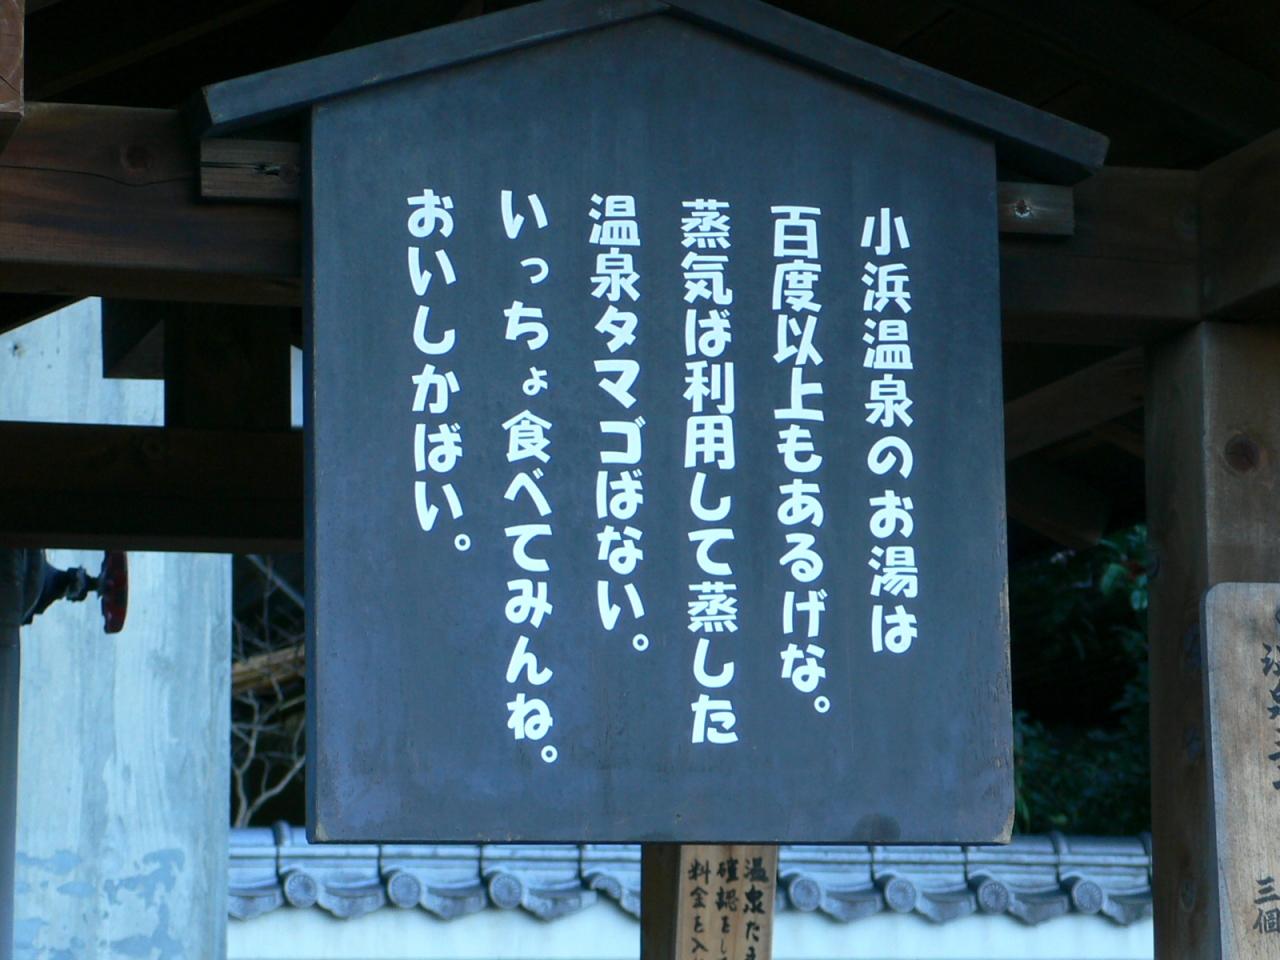 小浜温泉のお湯は
百度以上もあるげな。
蒸気ば利用して蒸した
温泉タマゴばない。
いっちょ食べてみんね。
おいしかばい。
温泉たま
確認をし
料金を入
三個